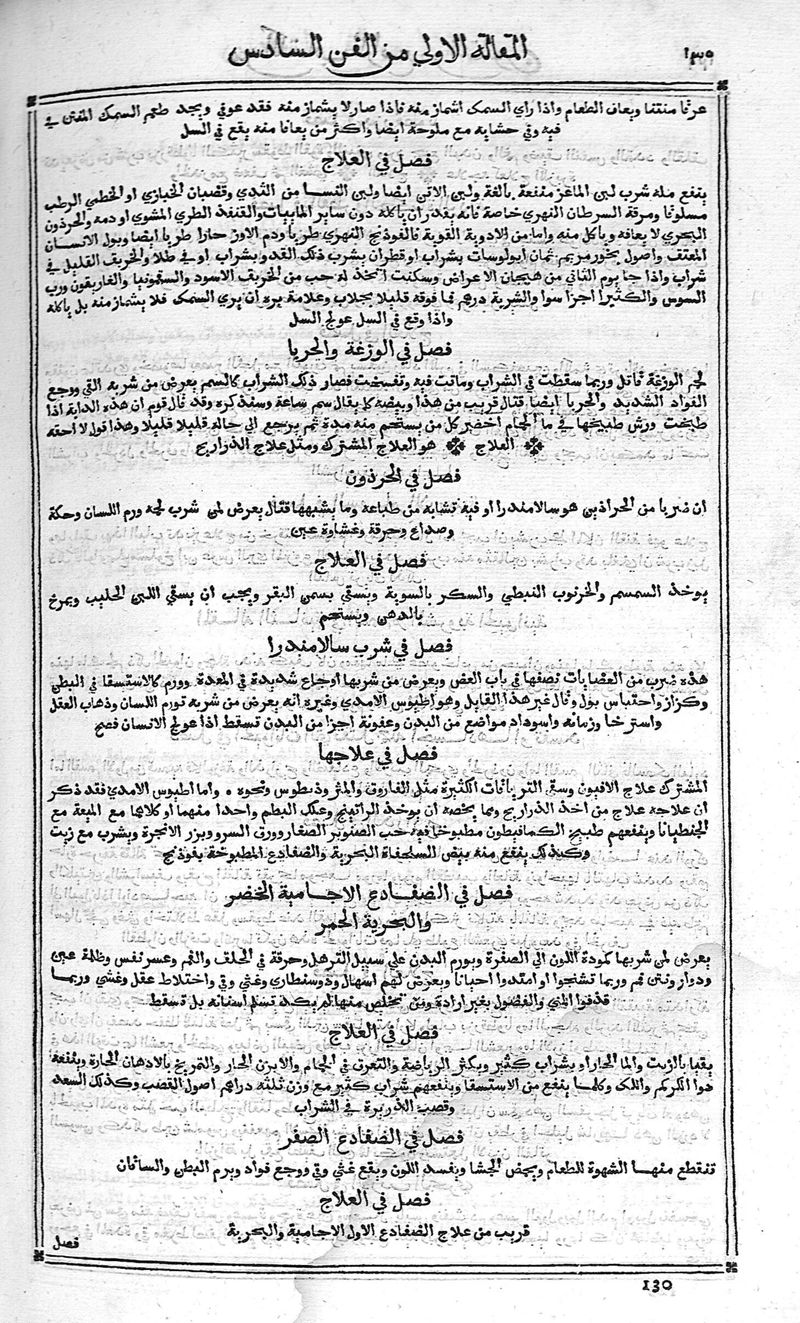 المقالة الاولي من الفن السادس
عرقا منتنا ويعاف الطعام واذا راي السمك اشماز منه فاذا صار لا يشماز منه فقد عوفي ويجد طعم السمك المنتن في
فيه وفي حشايه مع ملوحة ايضا واكثر من يعافا منه يقع في السل
فصل في العلاج
ينفع منه شرب لبن الماعز منفعة بالغة ولبن الاتن ايضا ولبن النسا من الثدي وقضبان الخبازي او الخطمي الرطب
مسلوقا ومرقة السرطان النهري خاصة فانه يقدر ان ياكله دون ساير المابيات والقنفذ الطري المشوي او دمه والحرذون
البحري لا يعافه وياكل منه واما من الادوية القوية فالفوذنج النهري طريا ودم الاوز حارا طريا ايضا وبول الانسان
المعتف واصول بخور مريم ثمان ابولوسات بشراب او قطران يشرب ذلك القدر بشراب او في طلا والخربف القليل في
شراب واذا جا يوم الثاني من هيجان الاعراض وسكنت اتخذ له حب من الخربف الاسود والسقمونيا والغاريقون ورب
السوس والكثيرا اجزا سوا والشربة درهم فما فوقه قليلا بجلاب وعلامة بره ان يري السمك فلا يشماز منه بل ياكله
واذا وقع في السل عولج السل
فصل في الوزغة والحربا
لحم الوزغة قاتل وربما سقطت في الشراب وماتت فيه وتفسخت فصار ذلك الشراب كالسم يعرض من شربه القي ووجع
الفواد الشديد والحربا ايضا قتال قريب من هذا وبيضه كما يقال سم ساعة وسنذكره وقد قال قوم ان هذه الدابة اذا
طبخت ورش طبيخها في ما الحمام اخضر كل من يستحم منه مدة ثم يرجع الي حاله قليلا قليلا وهذا قول لا احقه
❊ العلاج ❊ هو العلاج المشترك ومثل علاج الذراريح
فصل في الحرذون
ان ضربا من الحراذين هو سالامندرا او فيه تشابه من طباعه وما يشبهها قتال يعرض لمن شرب لحمه ورم اللسان وحكة
وصداع وحرقة وغشاوة عين
فصل في العلاج
يوخذ السمسم والخرنوب النبطي والسكر بالسوية ويسقي بسمن البقر ويجب ان يسقي اللبن الحليب ويمرخ
بالدهن ويستحم
فصل في شرب سالامندرا
هذه ضرب من العضايات نصفها في باب العض ويعرض من شربها اوجاع شديدة في المعدة وورم كالاستسقا في البطن
وكزاز واحتباس بول وقال غير هذا القايل وهو اطيوس الامدي وغيره انه يعرض من شربه تورم اللسان وذهاب العقل
واسترخا وزمانه واسوداد مواضع من البدن وعفونة اجزا من البدن تسقط اذا عولج الانسان فصح
فصل في علاجها
المشترك علاج الافيون وسقي الترياقات الكثيرة مثل الفاروق والمثروذيطوس ونحوه . واما اطيوس الامدي فقد ذكر
ان علاجه علاج من اخذ الذراريح ومما يخصه ان يوخذ الراتينج وعلك البطم واحدا منهما او كلاهما مع الميعة مع
الجنطيانا وينفعهم طبيخ الكمافيطون مطبوخا فيه حب الصنوبر الصغار وورق السرو وبزر الانجرة ويشرب مع زيت
وكذلك ينفع منه بيض السلحفاة البحرية والضفادع المطبوخة بفوذنج
فصل في الضفادع الاجامية الخضر
والبحرية الحمر
يعرض لمن شربها كمودة اللون الي الصفرة ويورم البدن علي سبيل الترهل وحرقة في الحلف والفم وعسر نفس وظلمة عين
ودوار ونتن فم وربما تشنجوا او امتدوا احيانا ويعرض لهم اسهال وذوسنطاري وغثي وقي واختلاط عقل وغشي وربما
قذفوا المني والفضول بغير ارادة ومن تخلص منها لم يكد تسلم اسنانه بل تسقط
فصل في العلاج
يقيا بالزيت والما الحار او بشراب كثير ويكثر الرياضة والتعرف في الحمام والابزن الحار والتمريخ بالادهان الحارة وينفعه
دوا الكركم واللك وكلما ينفع من الاستسقا وينفعهم شراب كثير مع وزن ثلثه دراهم اصول القصب وكذلك السعد
وقصب الذريرة في الشراب
فصل في الضفادع الصفر
تنقطع منها الشهوة للطعام ويحمض الجشا ويفسد اللون ويقع غثي وقي ووجع فواد ويرم البطن والساقان
فصل في العلاج
قريب من علاج الضفادع الاول الاجامية والبحرية
فصل
130